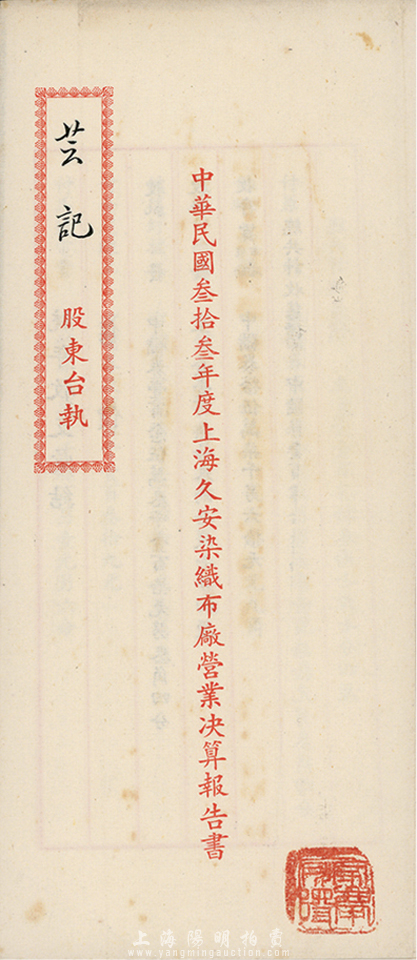 中華民國叁拾叁年度上海久安染織布廠營業決算報告書
芸記
股東台執
上海陽明拍賣
www.yangmingauction.com